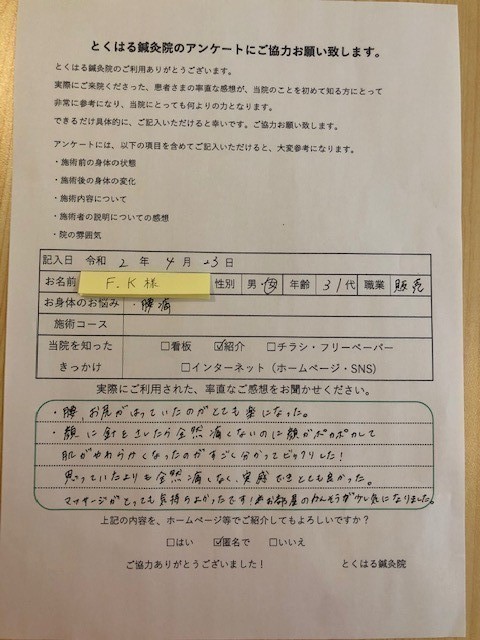 とくはる鍼灸院のアンケートにご協力お願い致します。
とくはる鍼灸院のご利用ありがとうございます。
実際にご来院くださった、患者さまの率直な感想が、当院のことを初めて知る方にとって
非常に参考になり、当院にとっても何よりの力となります。
できるだけ具体的に、ご記入いただけると幸いです。ご協力お願い致します。
アンケートには、以下の項目を含めてご記入いただけると、大変参考になります。
・施術前の身体の状態
・施術後の身体の変化
・施術内容について
・施術者の説明についての感想
・院の雰囲気
記入日 令和 2 年 4 月 23 日
お名前 F.K 様 性別 男・女 年齢 31代 職業 販売
お身体のお悩み ・腰痛
施術コース
当院を知った □看板 ☑紹介 □チラシ・フリーペーパー
きっかけ □インターネット（ホームページ・SNS）
実際にご利用された、率直なご感想をお聞かせください。
・腰、お尻がはっていたのがとても楽になった。
・顔に針をさしたら全然痛くないのに顔がポカポカして
肌がやわらかくなったのがすごく分かってビックリした！
思っていたよりも全然痛くなく、実感できとても良かった。
マッサージがとっても気持ちよかったです！お部屋のかんそうが気になりました。
上記の内容を、ホームページ等でご紹介してもよろしいですか？
□はい ☑匿名で □いいえ
ご協力ありがとうございました！ とくはる鍼灸院